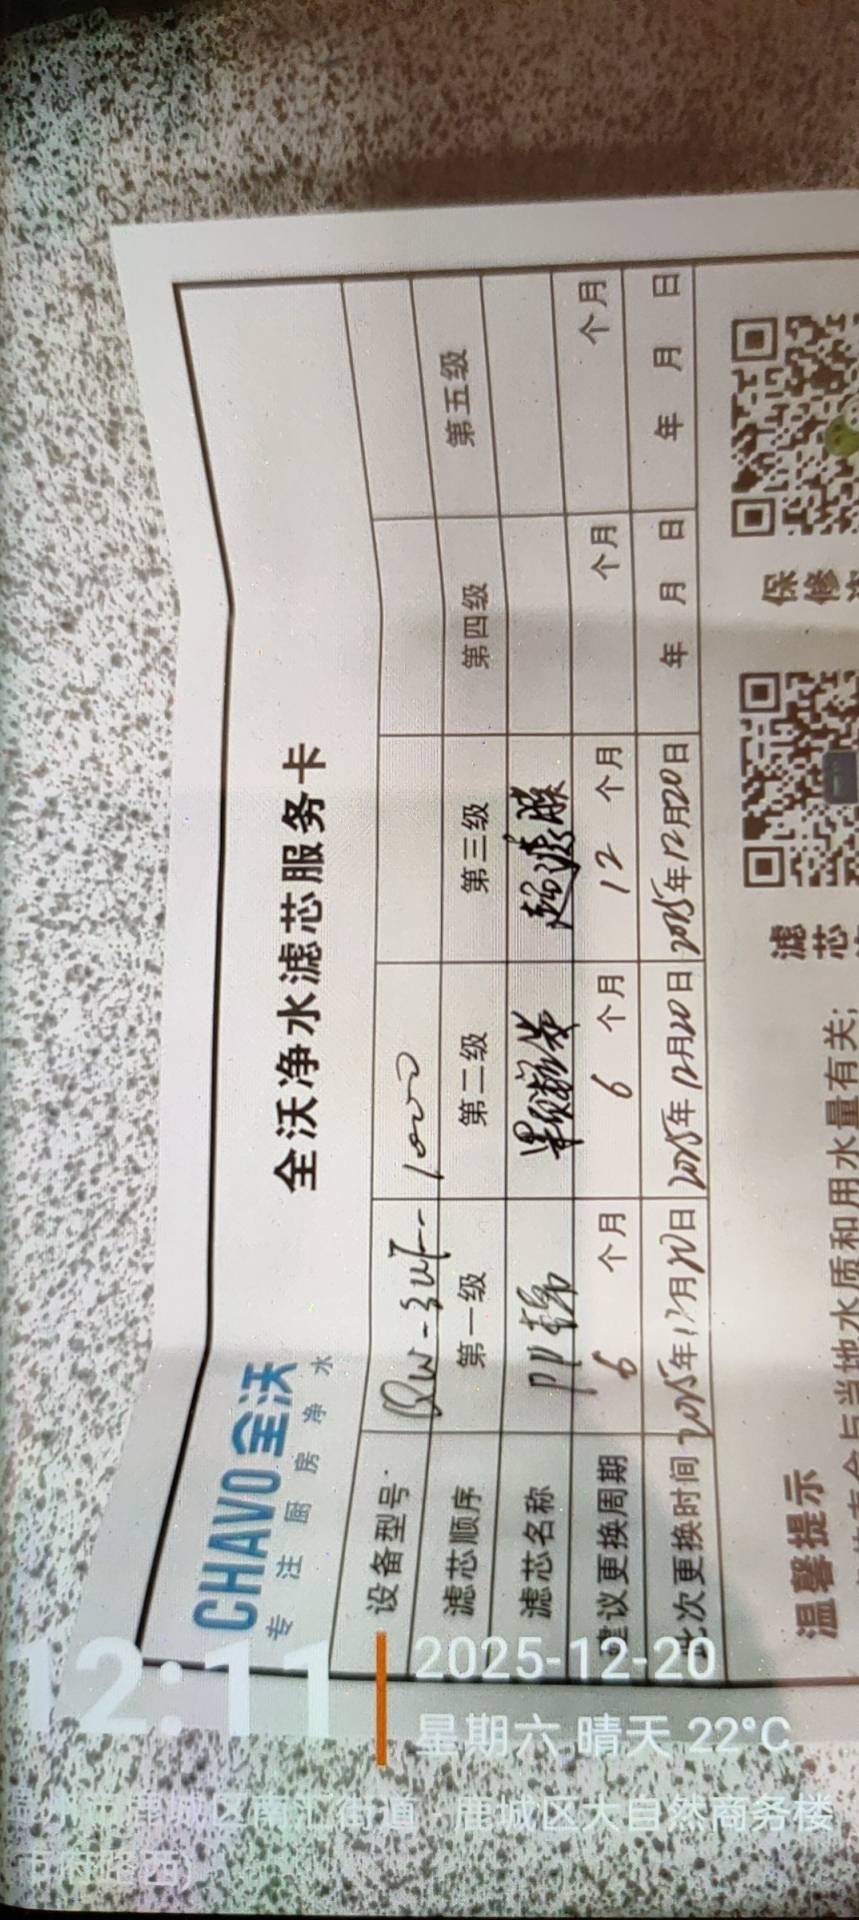 CHAVO 全沃
专注厨房净水
全沃净水滤芯服务卡
设备型号
滤芯顺序 第一级 第二级 第三级 第四级 第五级
滤芯名称 超滤膜
建议更换周期 6 个月 6 个月 12 个月 个月 个月
此次更换时间 2025年12月20日 2025年12月20日 2025年12月20日 年 月 日 年 月 日
温馨提示
与当地水质和用水量有关;
滤芯
保修
12:11
2025-12-20
星期六 晴天 22°C
鹿城区南汇街道·鹿城区大自然商务楼